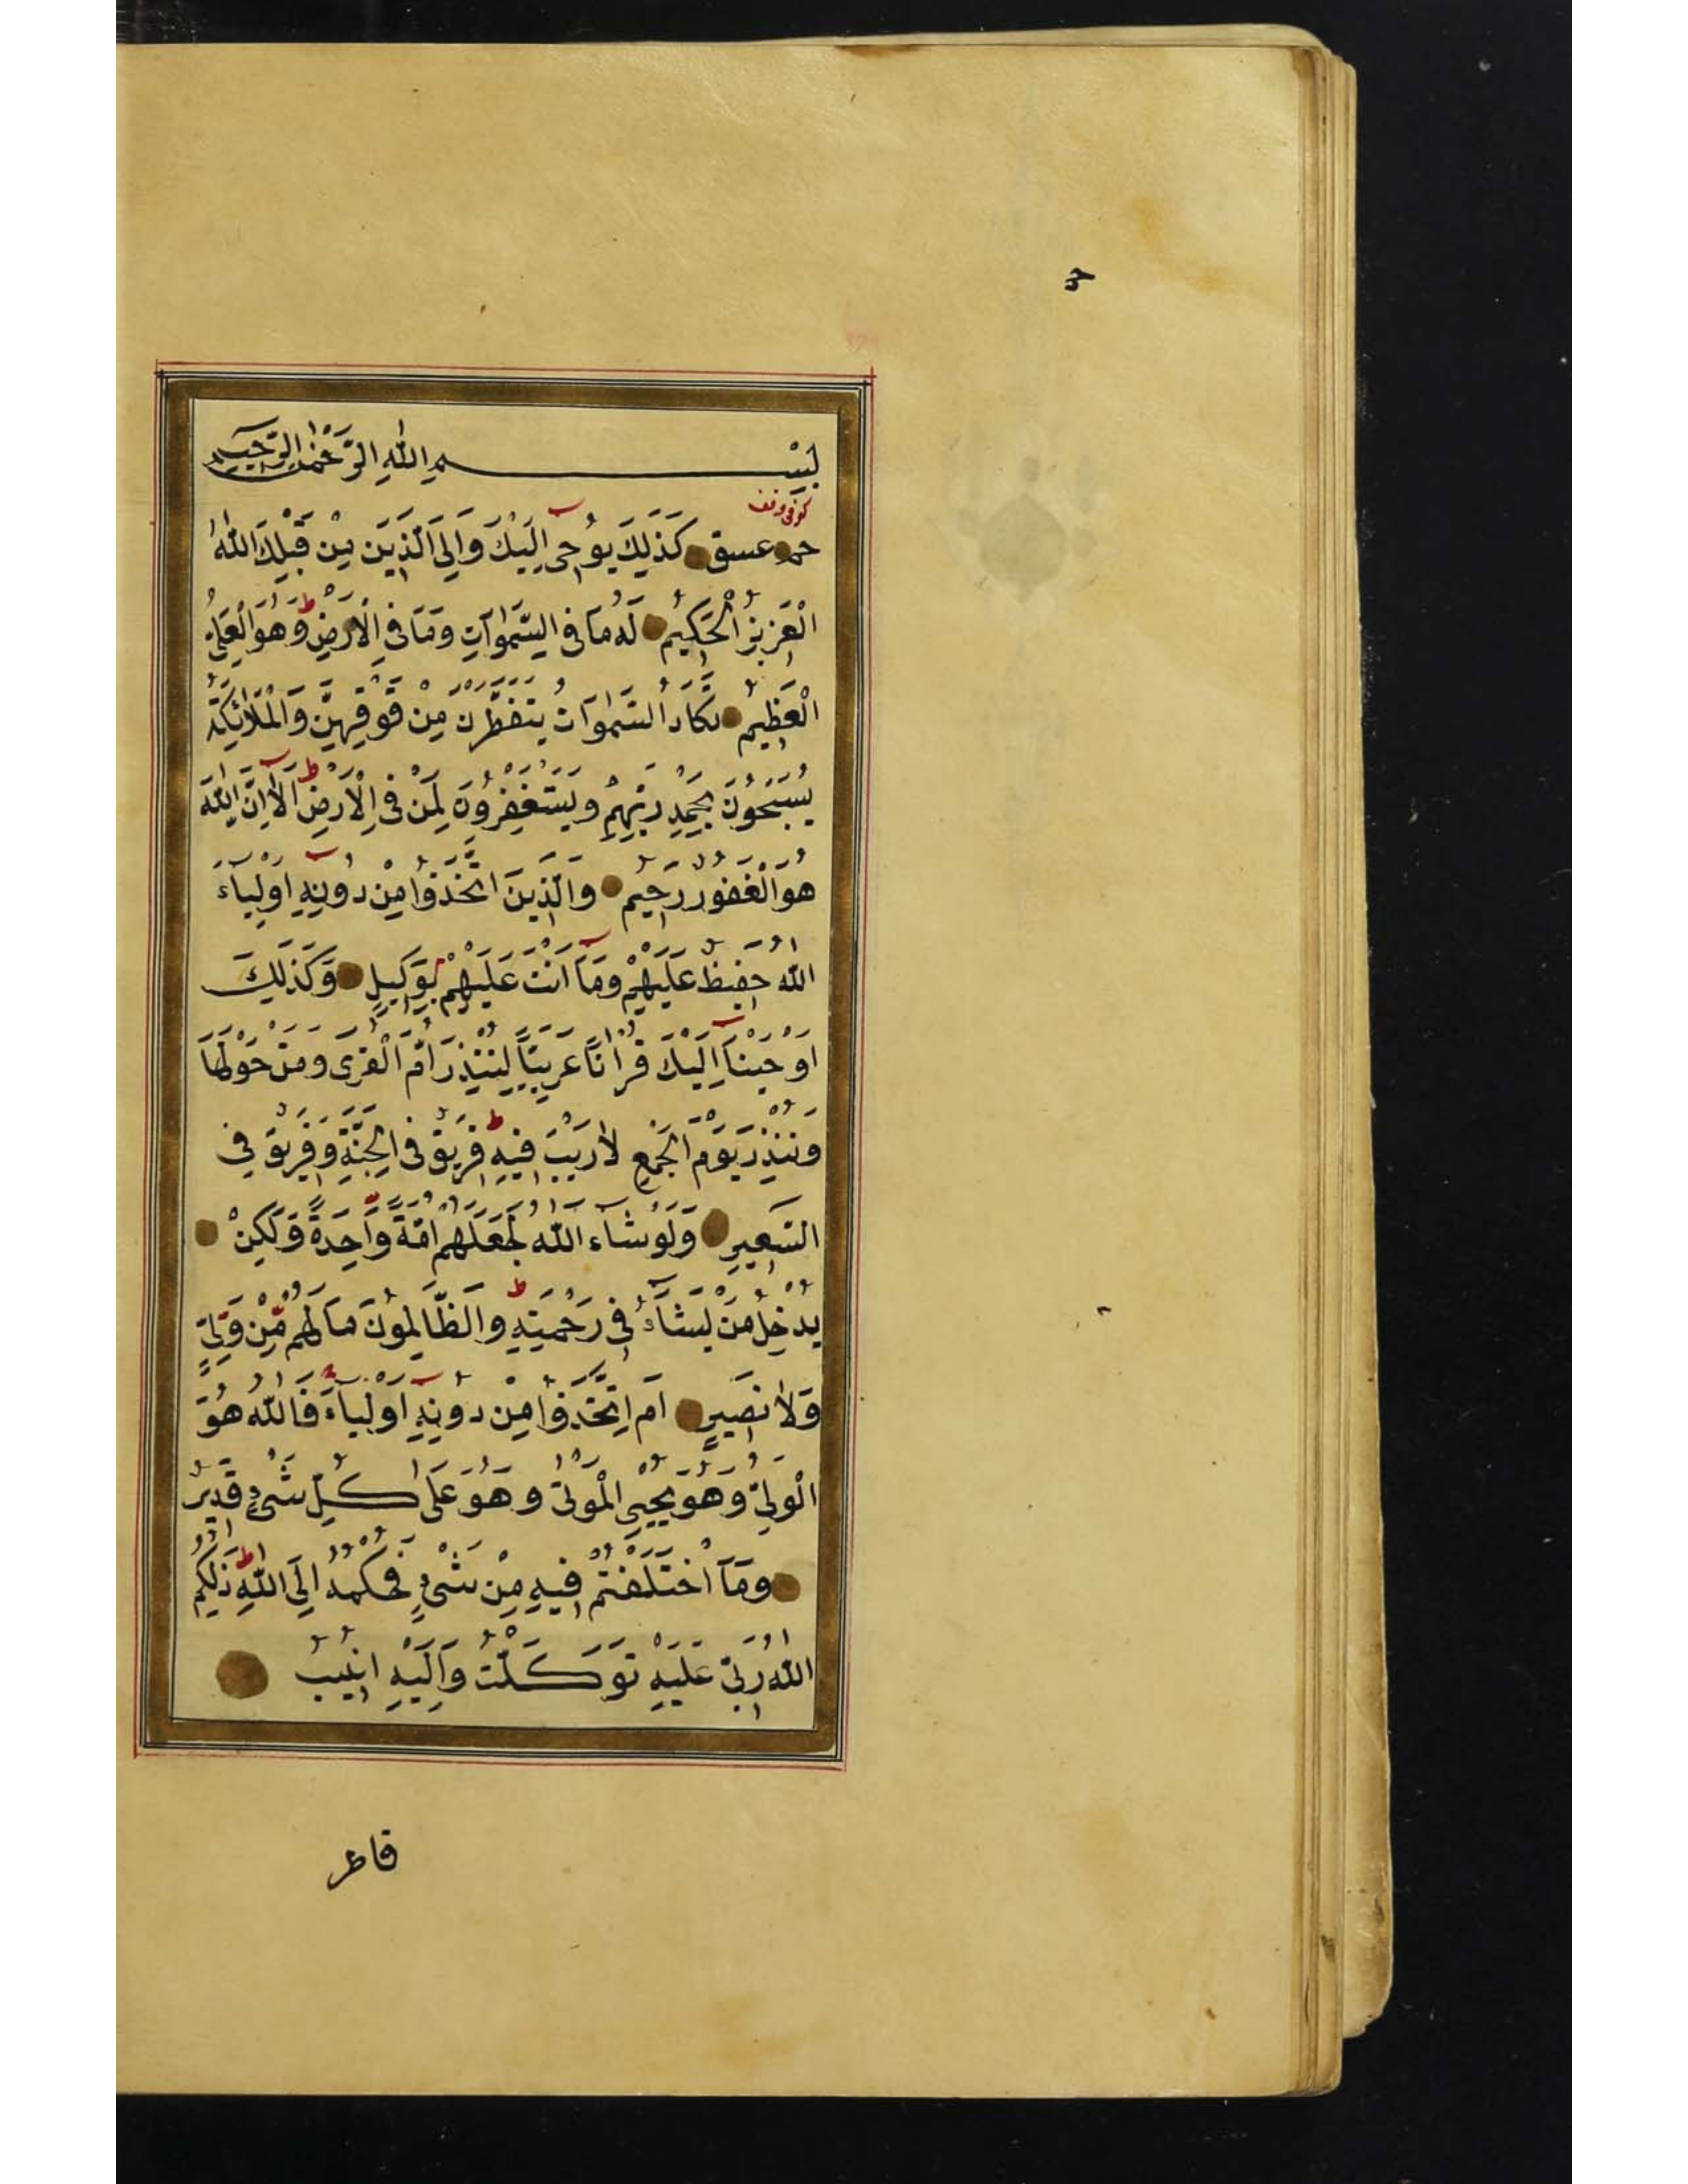 بِسْمِ اللّٰهِ الرَّحْمٰنِ الرَّحِيمِ
كوفى وقف
حم عسق كَذٰلِكَ يُوحِى اِلَيْكَ وَاِلَى الَّذِينَ مِنْ قَبْلِكَ اللّٰهُ
الْعَزِيزُ الْحَكِيمُ لَهُ مَا فِى السَّمٰوَاتِ وَمَا فِى الْاَرْضِ ط وَهُوَ الْعَلِىُّ
الْعَظِيمُ تَكَادُ السَّمٰوَاتُ يَتَفَطَّرْنَ مِنْ فَوْقِهِنَّ وَالْمَلٰائِكَةُ
يُسَبِّحُونَ بِحَمْدِ رَبِّهِمْ وَيَسْتَغْفِرُونَ لِمَنْ فِى الْاَرْضِ ط اَلٰا اِنَّ اللّٰهَ
هُوَ الْغَفُورُ رَحِيمُ وَالَّذِينَ اتَّخَذُوا مِنْ دُونِهِ اَوْلِيَاءَ
اللّٰهُ حَفِيظٌ عَلَيْهِمْ وَمَا اَنْتَ عَلَيْهِمْ بِوَكِيلٍ وَكَذٰلِكَ
اَوْحَيْنَا اِلَيْكَ قُرْاٰنًا عَرَبِيًّا لِتُنْذِرَ اُمَّ الْقُرٰى وَمَنْ حَوْلَهَا
وَتُنْذِرَ يَوْمَ الْجَمْعِ لَا رَيْبَ فِيهِ ط فَرِيقٌ فِى الْجَنَّةِ وَفَرِيقٌ فِى
السَّعِيرِ وَلَوْ شَاءَ اللّٰهُ لَجَعَلَهُمْ اُمَّةً وَاحِدَةً وَلٰكِنْ
يُدْخِلُ مَنْ يَشَاءُ فِى رَحْمَتِهِ ط وَالظَّالِمُونَ مَا لَهُمْ مِنْ وَلِىٍّ
وَلَا نَصِيرٍ اَمِ اتَّخَذُوا مِنْ دُونِهِ اَوْلِيَاءَ فَاللّٰهُ هُوَ
الْوَلِىُّ وَهُوَ يُحْيِى الْمَوْتٰى وَهُوَ عَلٰى كُلِّ شَىْءٍ قَدِيرٌ
وَمَا اخْتَلَفْتُمْ فِيهِ مِنْ شَىْءٍ فَحُكْمُهُ اِلَى اللّٰهِ ط ذٰلِكُمُ
اللّٰهُ رَبِّى عَلَيْهِ تَوَكَّلْتُ وَاِلَيْهِ اُنِيبُ
فاطر